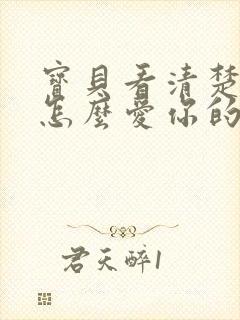 寶貝看清楚
怎麼愛你的
君天醉1